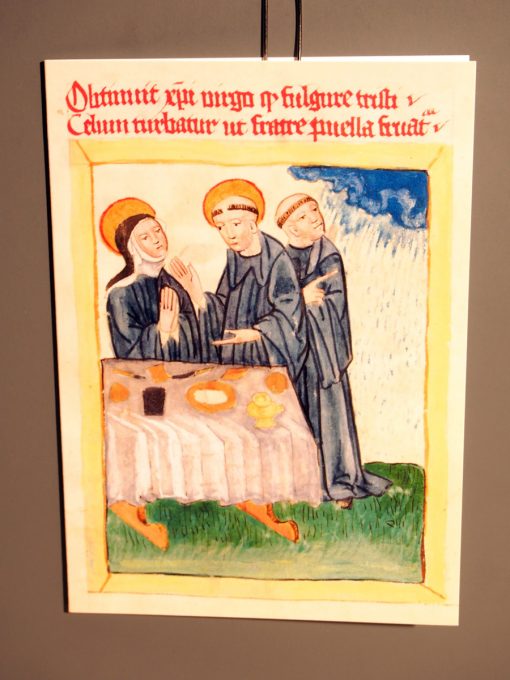 Obtinuit xp̄i virgo q̄ fulgure tristi
Celum turbatur ut fratre puella fruat᷑